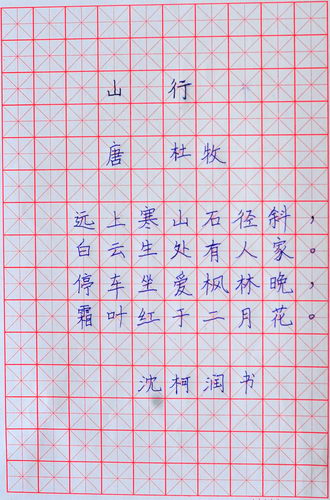 山行
唐 杜牧
远上寒山石径斜，
白云生处有人家。
停车坐爱枫林晚，
霜叶红于二月花。
沈柯润书